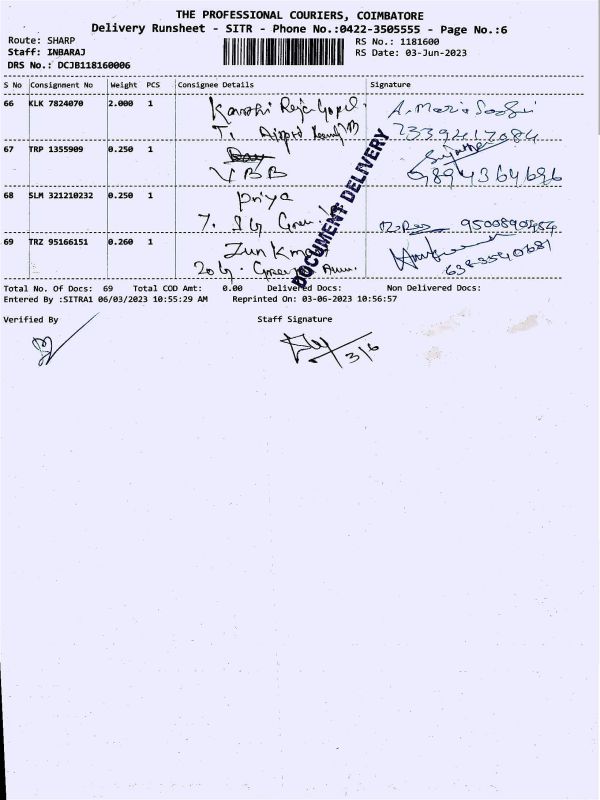 THE PROFESSIONAL COURIERS, COIMBATORE
Delivery Runsheet - SITR - Phone No.:0422-3505555 - Page No.:6
Route: SHARP
RS No.: 1181600
Staff: INBARAJ
RS Date: 03-Jun-2023
DRS No.: DCJB118160006
S No Consignment No Weight PCS Consignee Details Signature
66 KLK 7824070 2.000 1
T. Airport
7339217084
67 TRP 1355909 0.250 1
VBB
9894364686
68 SLM 321210232 0.250 1 Priya
7. SG
9500890454
69 TRZ 95166151 0.260 1
6383540681
DOCUMENT DELIVERY
Total No. Of Docs: 69 Total COD Amt: 0.00 Delivered Docs: Non Delivered Docs:
Entered By :SITRA1 06/03/2023 10:55:29 AM Reprinted On: 03-06-2023 10:56:57
Verified By Staff Signature
3/6